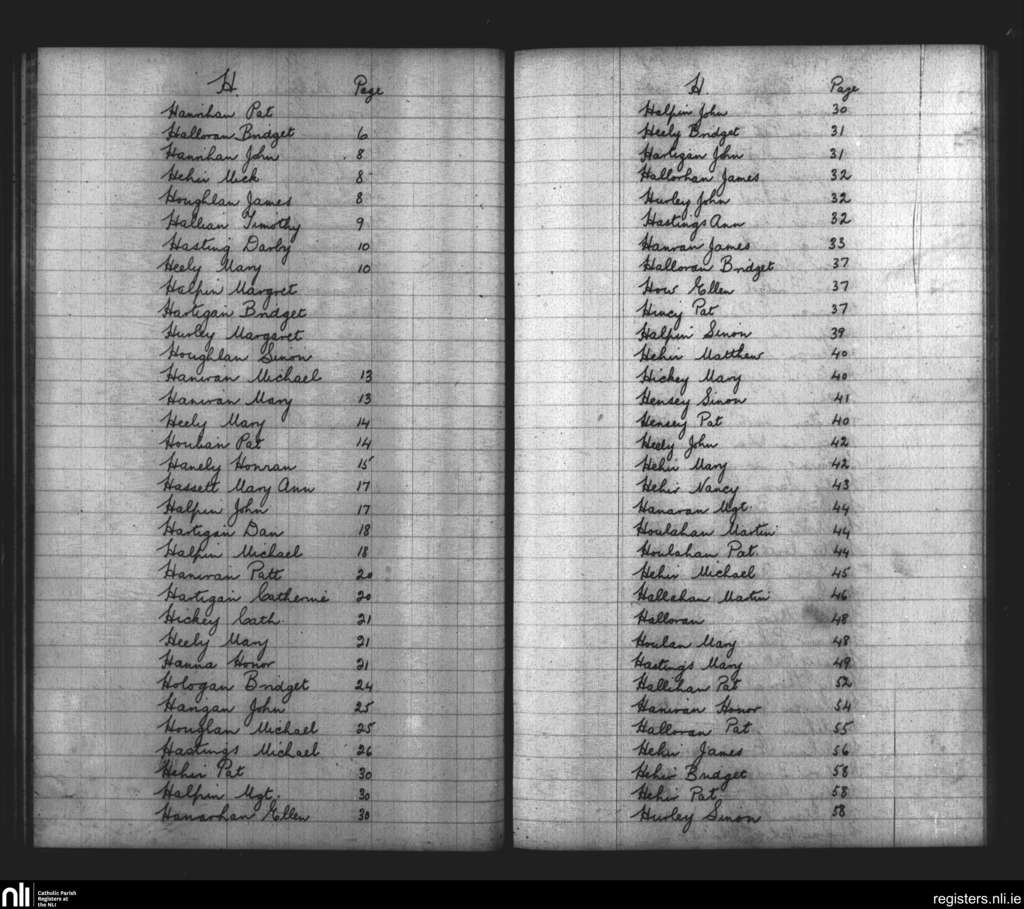 H Page
Hanrihan Pat
Halloran Bridget 6
Hanrihan John 8
Hehir Mick 8
Houghlan James 8
Hallian Timothy 9
Hasting Darby 10
Heely Mary 10
Halpin Margret
Hartigan Bridget
Hurley Margaret
Houghlan Sinon
Hanivan Michael 13
Hanivan Mary 13
Heely Mary 14
Houlian Pat 14
Hanely Honran 15
Hassett Mary Ann 17
Halpin John 17
Hartigan Dan 18
Halpin Michael 18
Hanivan Patt 20
Hartigan Catherine 20
Hickey Cath. 21
Heely Mary 21
Hanna Honor 21
Hologan Bridget 24
Hangan John 25
Houglan Michael 25
Hastings Michael 26
Hehir Pat 30
Halpin Mgt. 30
Hanarhan Ellen 30
H Page
Halpin John 30
Heely Bridget 31
Hartigan John 31
Hallorhan James 32
Hurley John 32
Hastings Ann 32
Hanran James 33
Halloran Bridget 37
How Ellen 37
Hincy Pat 37
Halpin Sinon 39
Hehir Matthew 40
Hickey Mary 40
Hensey Sinon 41
Hensey Pat 40
Heely John 42
Hehir Mary 42
Hehir Nancy 43
Hanaran Mgt. 44
Houlahan Martin 44
Houlahan Pat. 44
Hehir Michael 45
Hallahan Martin 46
Halloran 48
Houlan Mary 48
Hastings Mary 49
Hallihan Pat 52
Hanivan Honor 54
Halloran Pat 55
Hehir James 56
Hehir Bridget 58
Hehir Pat 58
Hurley Sinon 58
nli Catholic Parish
Registers at
the NLI
registers.nli.ie